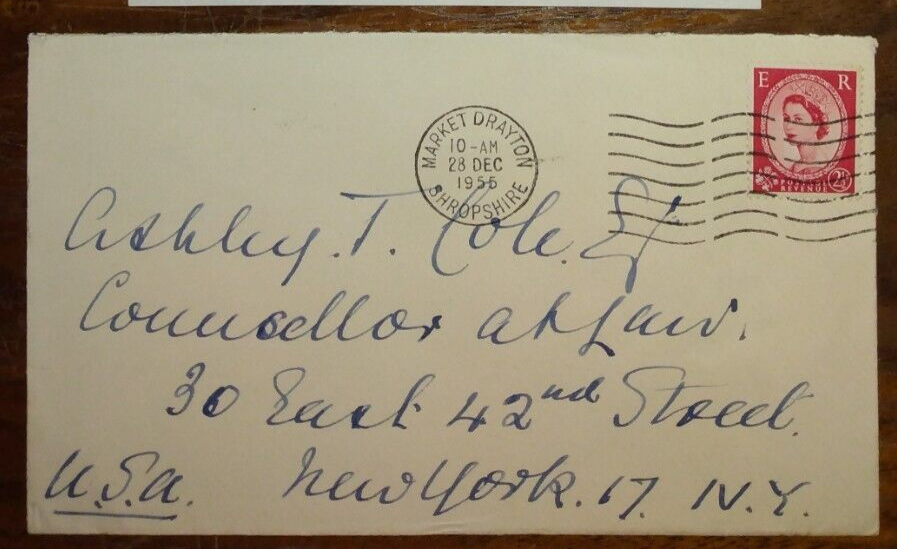 E R
MARKET DRAYTON
10-AM
28 DEC
1955
SHROPSHIRE
POSTAGE
REVENUE
2½
Ashley. T. Cole. Esq
Councellor at Law.
30 East 42nd Street.
U.S.A. New York. 17. N.Y.